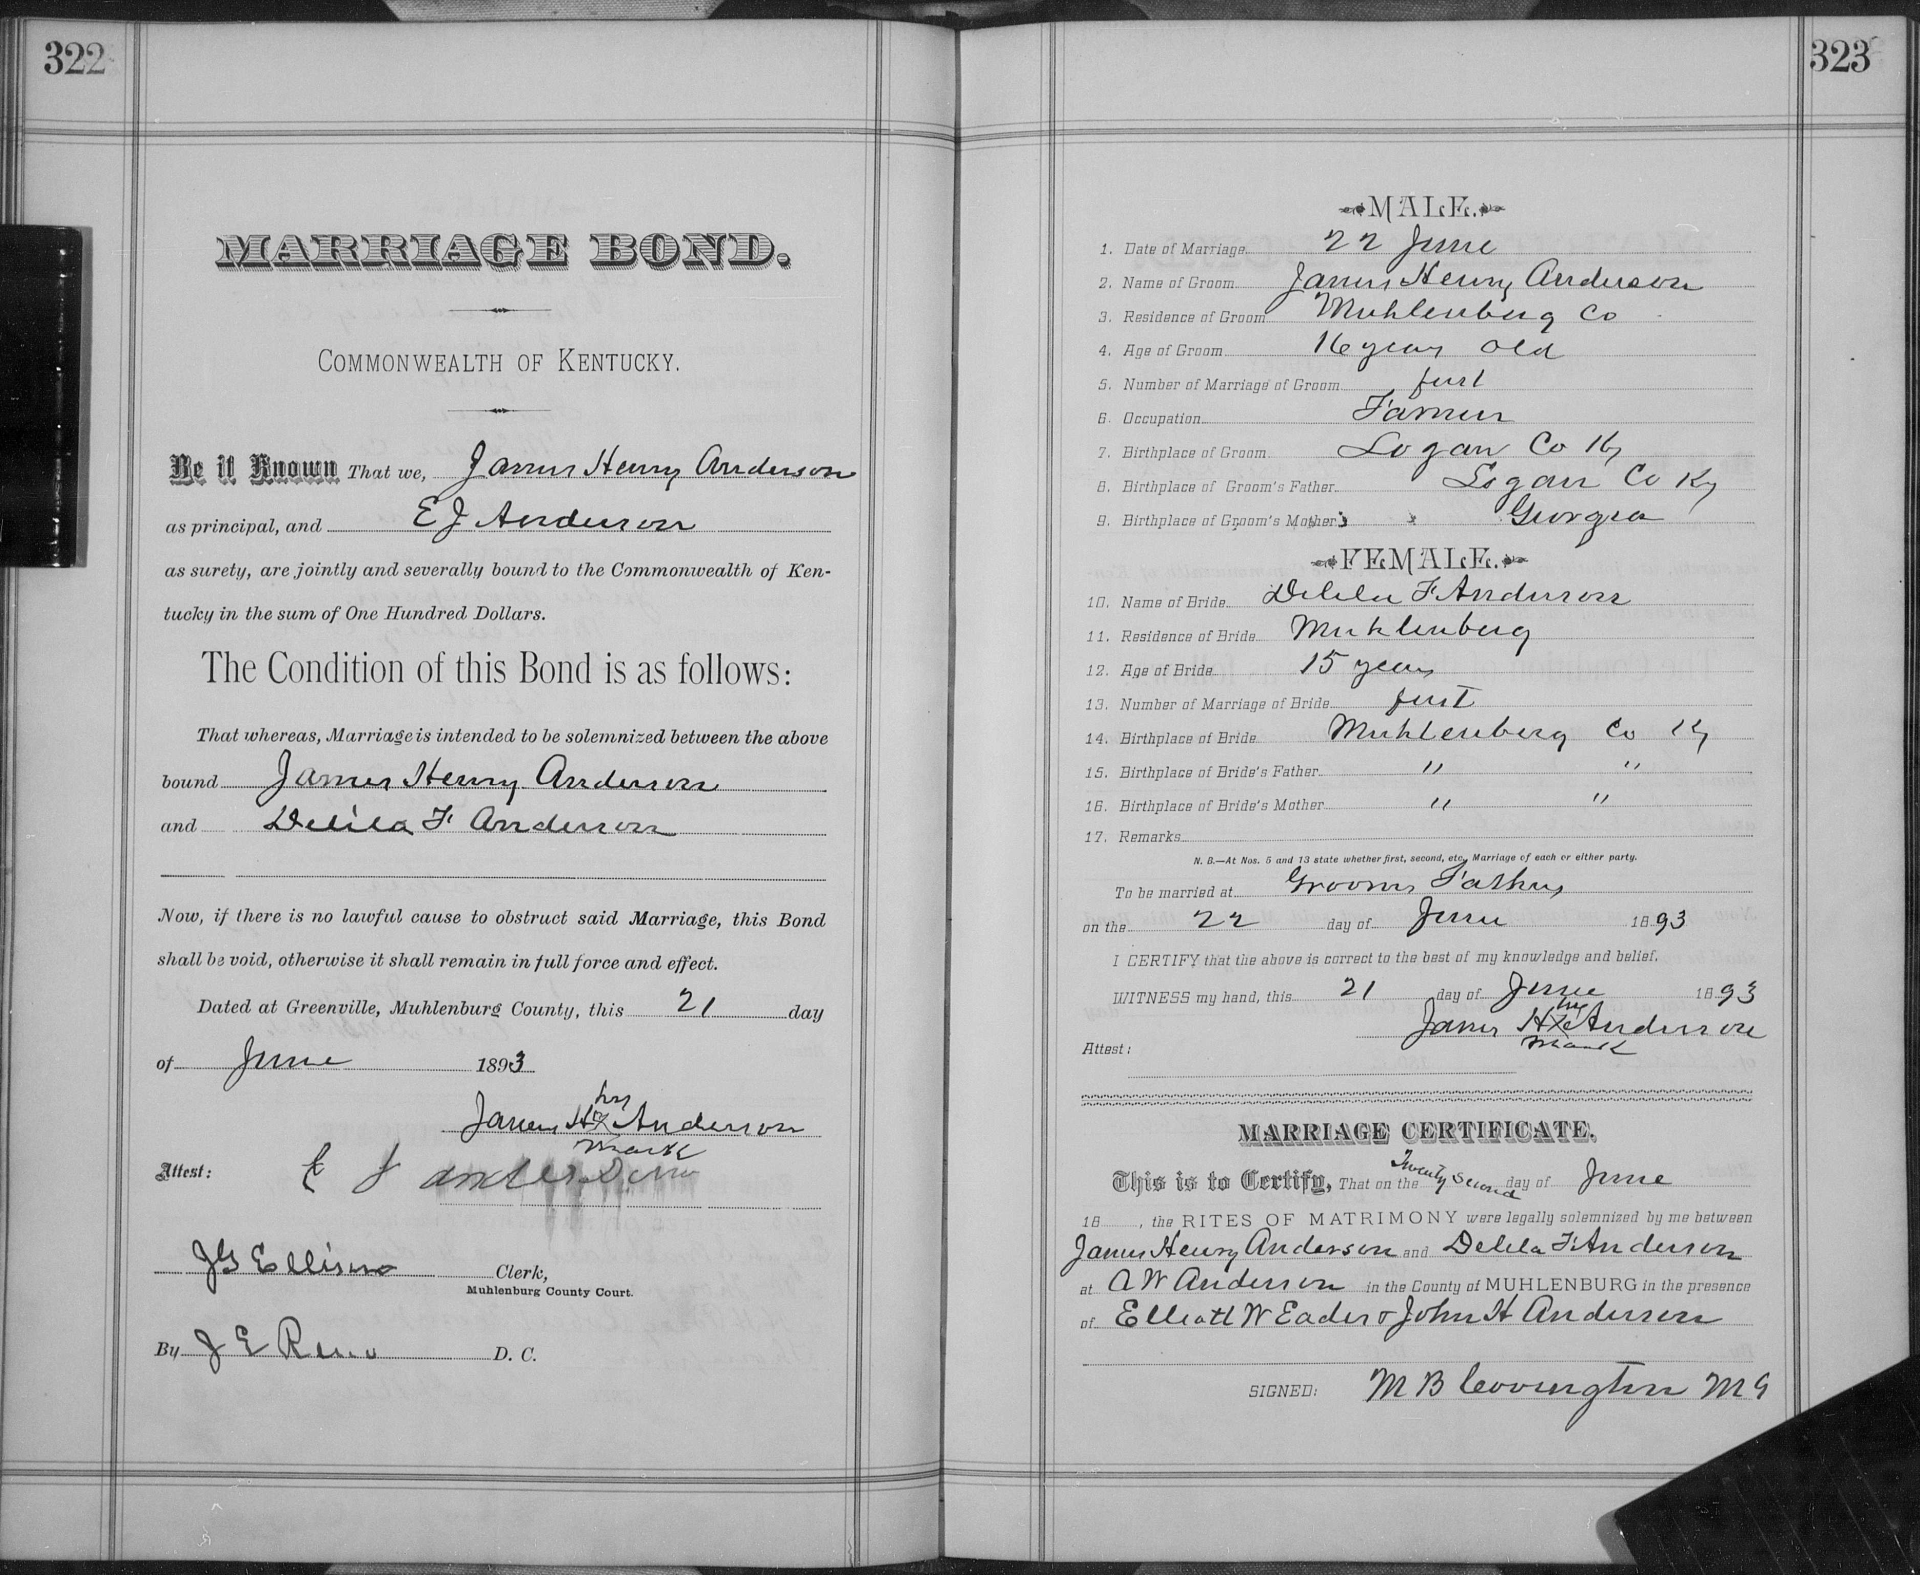 322
MARRIAGE BOND.
COMMONWEALTH OF KENTUCKY.
Be it Known That we, James Henry Anderson
as principal, and E J Anderson
as surety, are jointly and severally bound to the Commonwealth of Ken-
tucky in the sum of One Hundred Dollars.
The Condition of this Bond is as follows:
That whereas, Marriage is intended to be solemnized between the above
bound James Henry Anderson
and Delila F Anderson
Now, if there is no lawful cause to obstruct said Marriage, this Bond
shall be void, otherwise it shall remain in full force and effect.
Dated at Greenville, Muhlenburg County, this 21 day
of June 1893
his
James H X Anderson
mark
Attest: E J anderson
J G Ellison Clerk,
Muhlenburg County Court.
By J E Reno D. C.
323
MALE.
1. Date of Marriage 22 June
2. Name of Groom James Henry Anderson
3. Residence of Groom Muhlenberg Co
4. Age of Groom 16 years old
5. Number of Marriage of Groom first
6. Occupation Farmer
7. Birthplace of Groom Logan Co Ky
8. Birthplace of Groom's Father Logan Co Ky
9. Birthplace of Groom's Mother Georgia
FEMALE.
10. Name of Bride Delila F Anderson
11. Residence of Bride Muhlenberg
12. Age of Bride 15 years
13. Number of Marriage of Bride first
14. Birthplace of Bride Muhlenberg Co Ky
15. Birthplace of Bride's Father " "
16. Birthplace of Bride's Mother " "
17. Remarks
N. B.—At Nos. 5 and 13 state whether first, second, etc. Marriage of each or either party.
To be married at Grooms Fathers
on the 22 day of June 1893
I CERTIFY that the above is correct to the best of my knowledge and belief.
WITNESS my hand, this 21 day of June 1893
his
James H X Anderson
mark
Attest:
MARRIAGE CERTIFICATE.
This is to Certify, That on the Twenty Second day of June
18 , the RITES OF MATRIMONY were legally solemnized by me between
James Henry Anderson and Delila F Anderson
at A W Anderson in the County of MUHLENBURG in the presence
of Elliott W Eades & John H Anderson
SIGNED: M B Covington M G